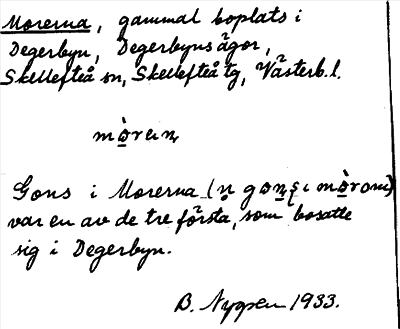 Morerna, gammal boplats i
Degerbyn, Degerbyns ägor,
Skellefteå sn, Skellefteå tg, Västerb. l.
Gons i Morerna (
var en av de tre första, som bosatte
sig i Degerbyn.
B. Nyppen 1933.